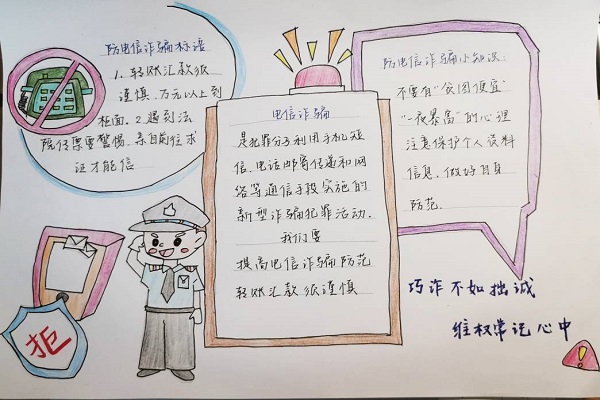 防电信诈骗标语
1、转账汇款很
谨慎.万元以上到
柜面.2.遇到法
院传票要警惕.亲自前往求
证才能信
电信诈骗
是犯罪分子利用手机短
信.电话邮寄传递和网
络等通信手段实施的
新型诈骗犯罪活动.
我们要
提高电信诈骗防范
转账汇款很谨慎
防电信诈骗小知识:
不要有“贪图便宜”
“一夜暴富”的心理
注意保护个人资料
信息.做好自身
防范.
巧诈不如拙诚
维权常记心中
拒